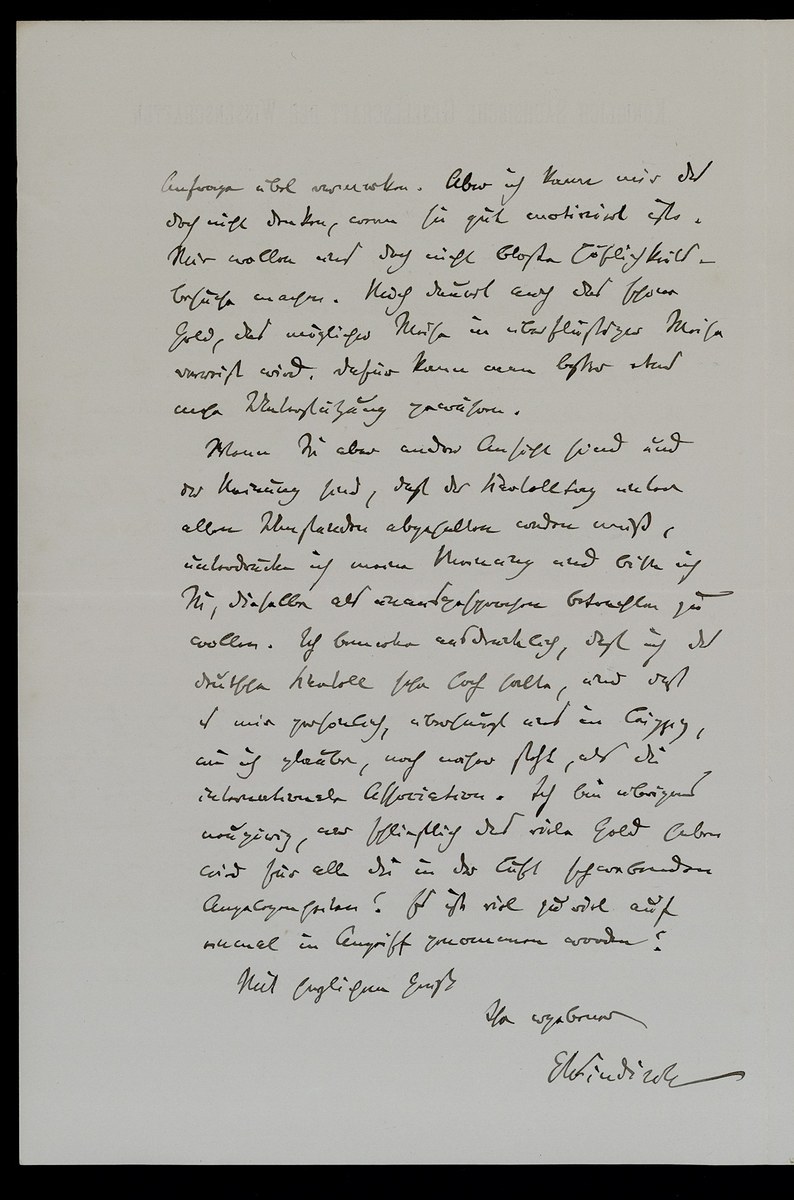 Anfrage übel vermerken. Aber ich kann mir das
doch nicht denken, wenn sie gut motivirt ist.
Wir wollen uns doch nicht bloße Höflichkeits-
besuche machen. Mich dauert auch das schöne
Geld, das möglicher Weise in überflüssiger Weise
verreist wird. Dafür kann man besser etwas
mehr Unterstützung gewähren.
Wenn Sie aber andrer Ansicht sind und
der Meinung sind, daß der Kartelltag unter
allen Umständen abgehalten werden muß,
unterdrücke ich meine Meinung und bitte ich
Sie, dieselbe als unausgesprochen betrachten zu
wollen. Ich bemerke ausdrücklich, daß ich das
deutsche Kartell sehr hoch halte, und daß
es mir persönlich, überhaupt uns in Leipzig,
wie ich glaube, noch näher steht, als die
internationale Association. Ich bin übrigens
neugierig, wer schließlich das viele Geld geben
wird für alle die in der Luft schwebenden
Angelegenheiten! Es ist viel zu viel auf
einmal in Angriff genommen worden!
Mit herzlichem Gruß
Ihr ergebener
EWindisch
KÖNIGLICH SÄCHSISCHE GESELLSCHAFT DER WISSENSCHAFTEN